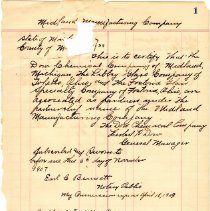 1
Midland Manufacturing Company
State of
County of M
This is to certify that the
Dow Chemical Company of Midland,
Michigan, The Libbey Glass Company of
Toledo Ohio, and The Fostoria Glass
Specialty Company of Fostoria, Ohio, are
associated as partners under the
partnership name of the Midland
Manufacturing Company
The Dow Chemical Company
Herbert H Dow
General Manager
Subscribed and sworn to
before me this 5th day of November
1907
Earl E. Bennett
Notary Public
My Commission expires April 12, 1909